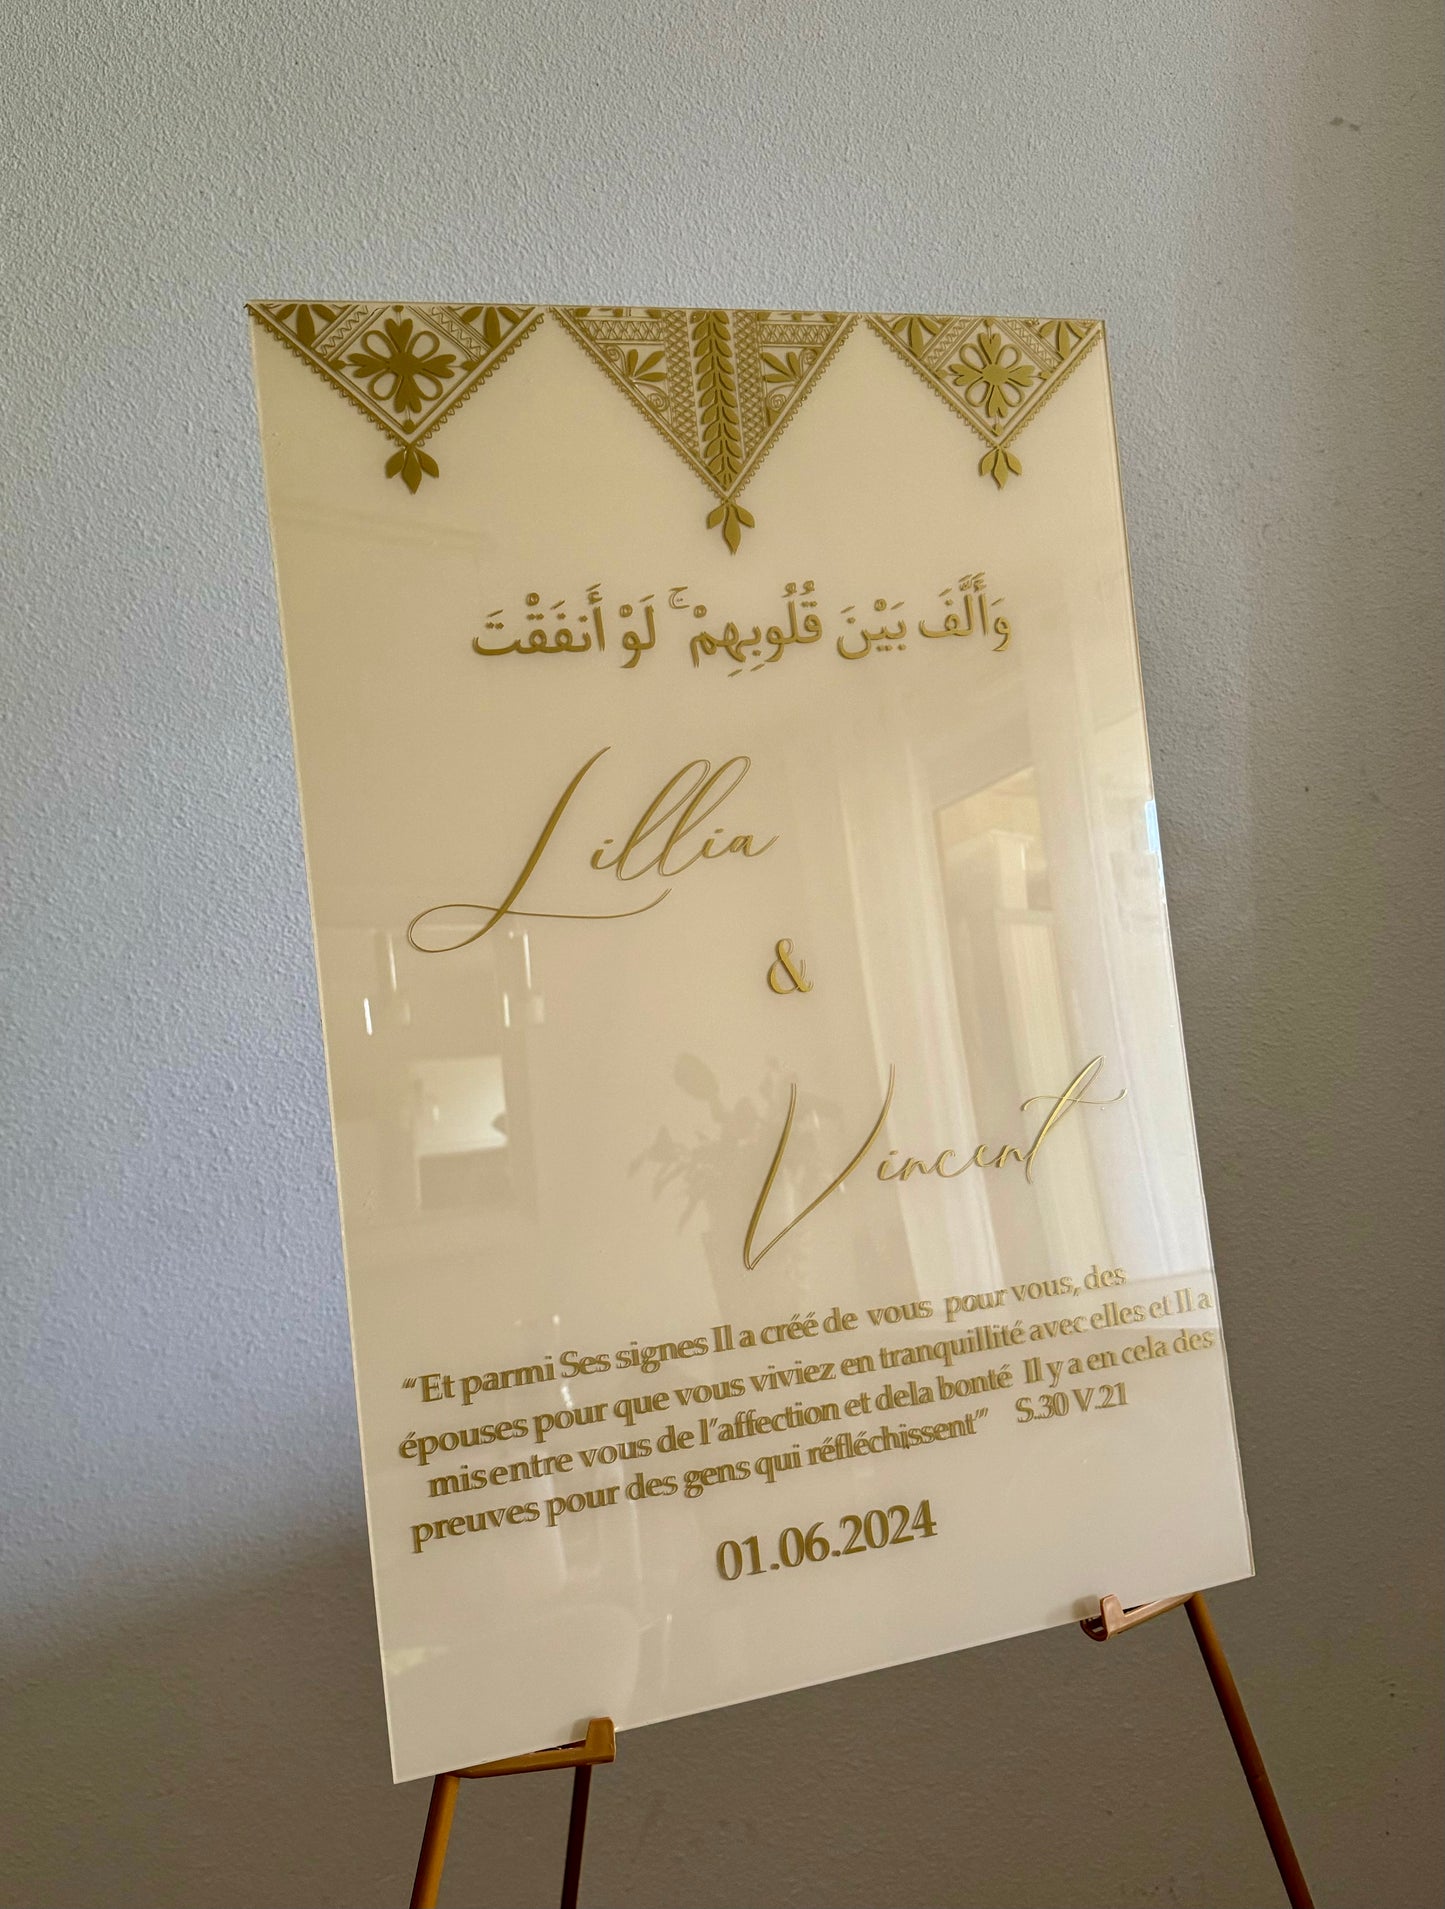 وَأَلَّفَ بَيْنَ قُلُوبِهِمْ ۚ لَوْ أَنفَقْتَ
Lillia
&
Vincent
"Et parmi Ses signes Il a créé de vous pour vous, des
épouses pour que vous viviez en tranquillité avec elles et Il a
mis entre vous de l'affection et dela bonté Il y a en cela des
preuves pour des gens qui réfléchissent" S.30 V.21
01.06.2024